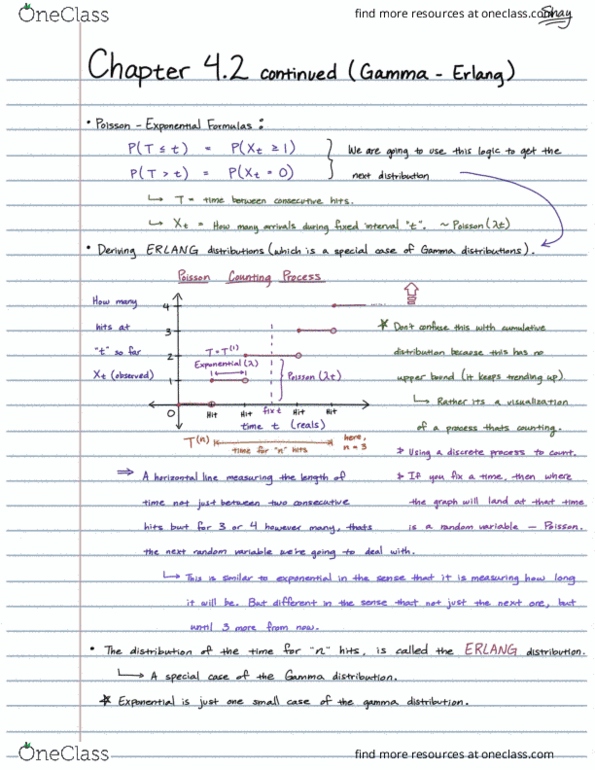 OneClass
find more resources at oneclass.com
Shay
Chapter 4.2 continued (Gamma - Erlang)
• Poisson - Exponential Formulas :
P(T ≤ t) = P(Xt ≥ 1)
We are going to use this logic to get the
P(T > t) = P(Xt = 0)
next distribution
↳ T = time between consecutive hits.
↳ Xt = How many arrivals during fixed interval "t". ~ Poisson (λt)
• Deriving ERLANG distributions (which is a special case of Gamma distributions).
Poisson Counting Process
How many
hits at
"t" so far
Xt (observed)
4
3
2
1
0
T = T(1)
Exponential (λ)
Poisson (λt)
Hit
Hit
fix t
Hit
Hit
time t (reals)
T(n)
time for "n" hits
here,
n = 3
* Don't confuse this with cumulative
distribution because this has no
upper bound (it keeps trending up).
↳ Rather its a visualization
of a process thats counting.
* Using a discrete process to count.
* If you fix a time, then where
the graph will land at that time
is a random variable - Poisson.
⇒ A horizontal line measuring the length of
time not just between two consecutive
hits but for 3 or 4 however many, thats
the next random variable we're going to deal with.
↳ This is similar to exponential in the sense that it is measuring how long
it will be. But different in the sense that not just the next one, but
until 3 more from now.
• The distribution of the time for "n" hits, is called the ERLANG distribution.
↳ A special case of the Gamma distribution.
* Exponential is just one small case of the gamma distribution.
OneClass
find more resources at oneclass.com